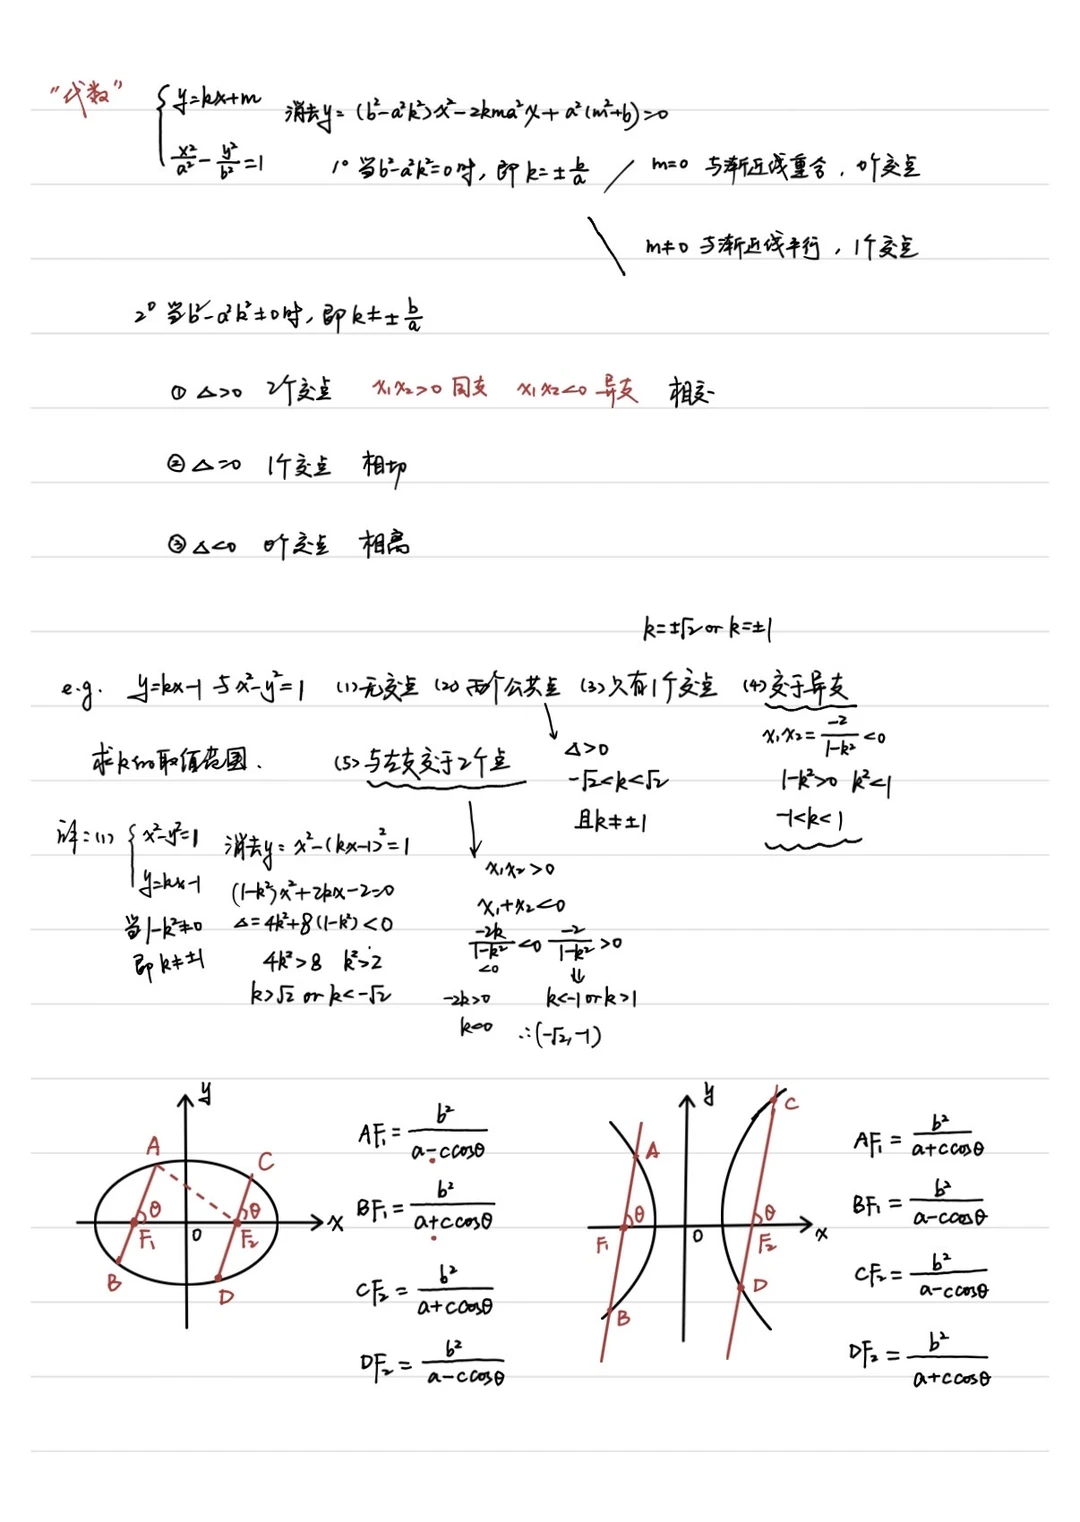 “代数”
{ y=kx+m
x²/a² - y²/b² =1
消去y: (b²-a²k²)x²-2kma²x+a²(m²+b)=0
1° 当b²-a²k²=0时, 即k=±b/a
m=0 与渐近线重合, 0个交点
m≠0 与渐近线平行, 1个交点
2° 当b²-a²k²≠0时, 即k≠±b/a
① △>0 2个交点 x₁x₂>0 同支 x₁x₂<0 异支 相交
② △=0 1个交点 相切
③ △<0 0个交点 相离
k=±√2 or k=±1
e.g. y=kx-1 与x²-y²=1 (1)无交点 (2) 两个公共点 (3)只有1个交点 (4)交于异支
求k的取值范围. (5)与左支交于2个点
△>0
-√2<k<√2
且k≠±1
x₁x₂= -2/(1-k²) <0
1-k²>0 k²<1
-1<k<1
详:(1) { x²-y²=1
y=kx-1
消去y: x²-(kx-1)²=1
(1-k²)x²+2kx-2=0
当1-k²≠0
即k≠±1
△=4k²+8(1-k²)<0
4k²>8 k²>2
k>√2 or k<-√2
x₁x₂>0
x₁+x₂<0
-2k/(1-k²) <0 -2/(1-k²) >0
<0 ⇓
-2k>0 k<-1 or k>1
k<0 ∴(-√2,-1)
y
A
C
θ
θ
x
F₁
O
F₂
B
D
AF₁= b²/(a-ccosθ)
BF₁= b²/(a+ccosθ)
CF₂= b²/(a+ccosθ)
DF₂= b²/(a-ccosθ)
y
C
A
θ
θ
F₁
O
F₂
x
D
B
AF₁ = b²/(a+ccosθ)
BF₁= b²/(a-ccosθ)
CF₂= b²/(a-ccosθ)
DF₂= b²/(a+ccosθ)